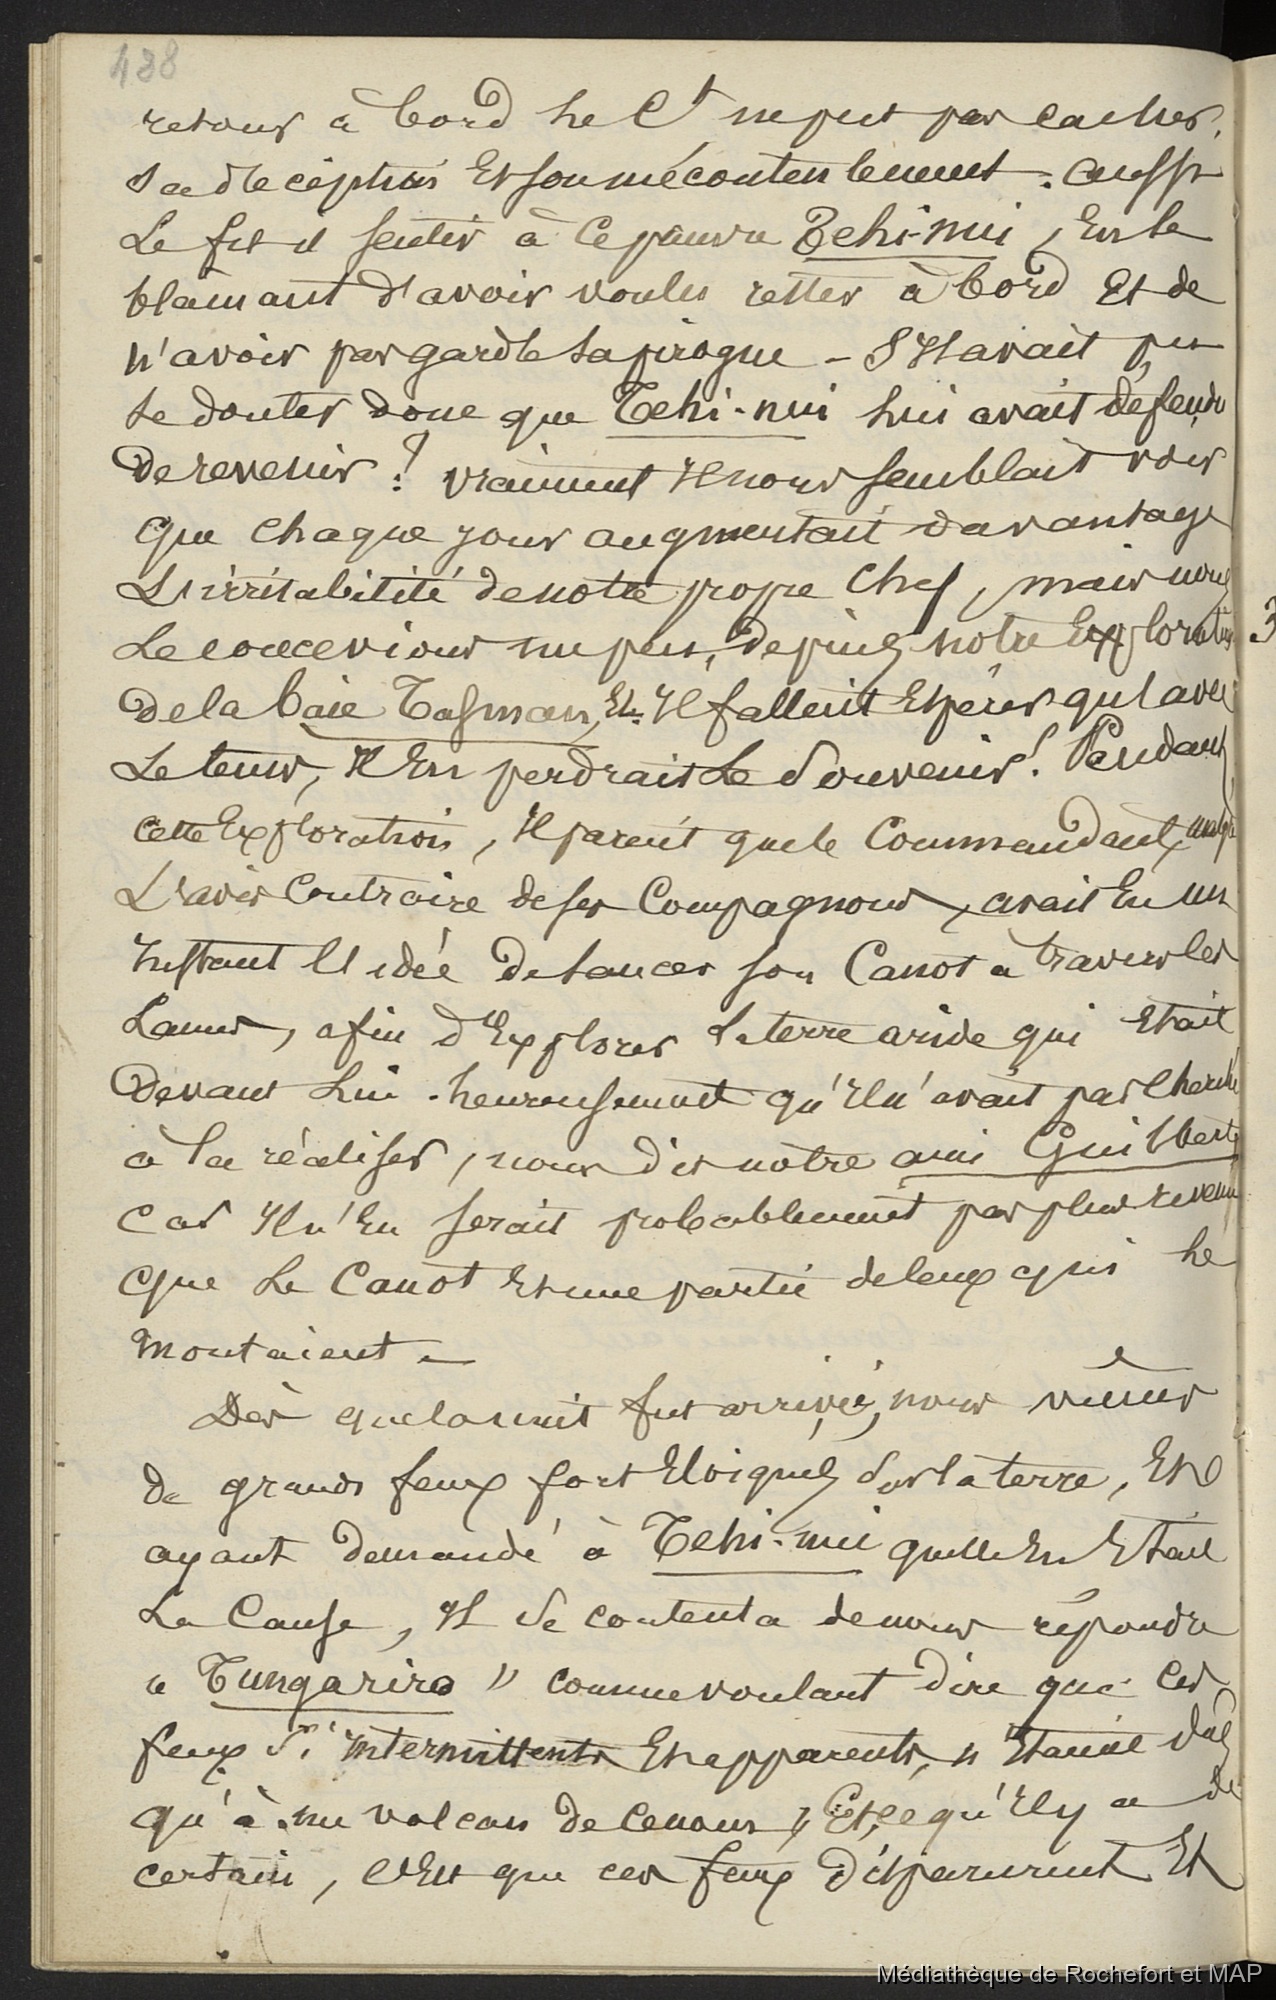 438
retour à bord le Ct ne put pas cacher
sa déception Et son mécontentement. aussi
Le fit il sentir à ce pauvre Tehi-nui, En le
blâmant d'avoir voulu rester à bord Et de
n'avoir pas gardé sa pirogue – S'Il avait pu
se douter donc que Tehi-nui lui avait défendu
De revenir ! vraiment Il nous semblait voir
que chaque jour augmentait davantage
L'irritabilité de notre propre Chef, mais nous
Le concevions un peu, depuis notre Exploration
De la baie Tasman, Et Il fallait Espérer qu'avec
Le tems, Il En perdrait Le Souvenir ! Pendant
cette Exploration, Il parait que le Commandant, malgré
L'avis Contraire de ses Compagnons, avait Eu un
Instant l'idée de lancer son Canot à travers les
Lames, afin d'Explorer la terre aride qui Etait
Devant Lui. heureusement qu'Il n'avait pas cherché
à la réaliser, nous dit notre ami Guilbert,
car Il n'En serait probablement pas plus revenu
que Le Canot Et une partie de ceux qui le
montaient –
Dès que la nuit fut arrivée, nous vîmes
de grands feux fort Eloignés Sur la terre, Et
ayant demandé à Tehi-nui quelle En Etait
La Cause, Il se contenta de nous répondre
" Tungariro " comme voulant dire que ces
feux Si intermittents Et apparents, n'Etaient dûs
qu'à un volcan de ce nom, Et ce qu'Il y a de
certain, c'Est que ces feux disparurent Et
Médiathèque de Rochefort et MAP